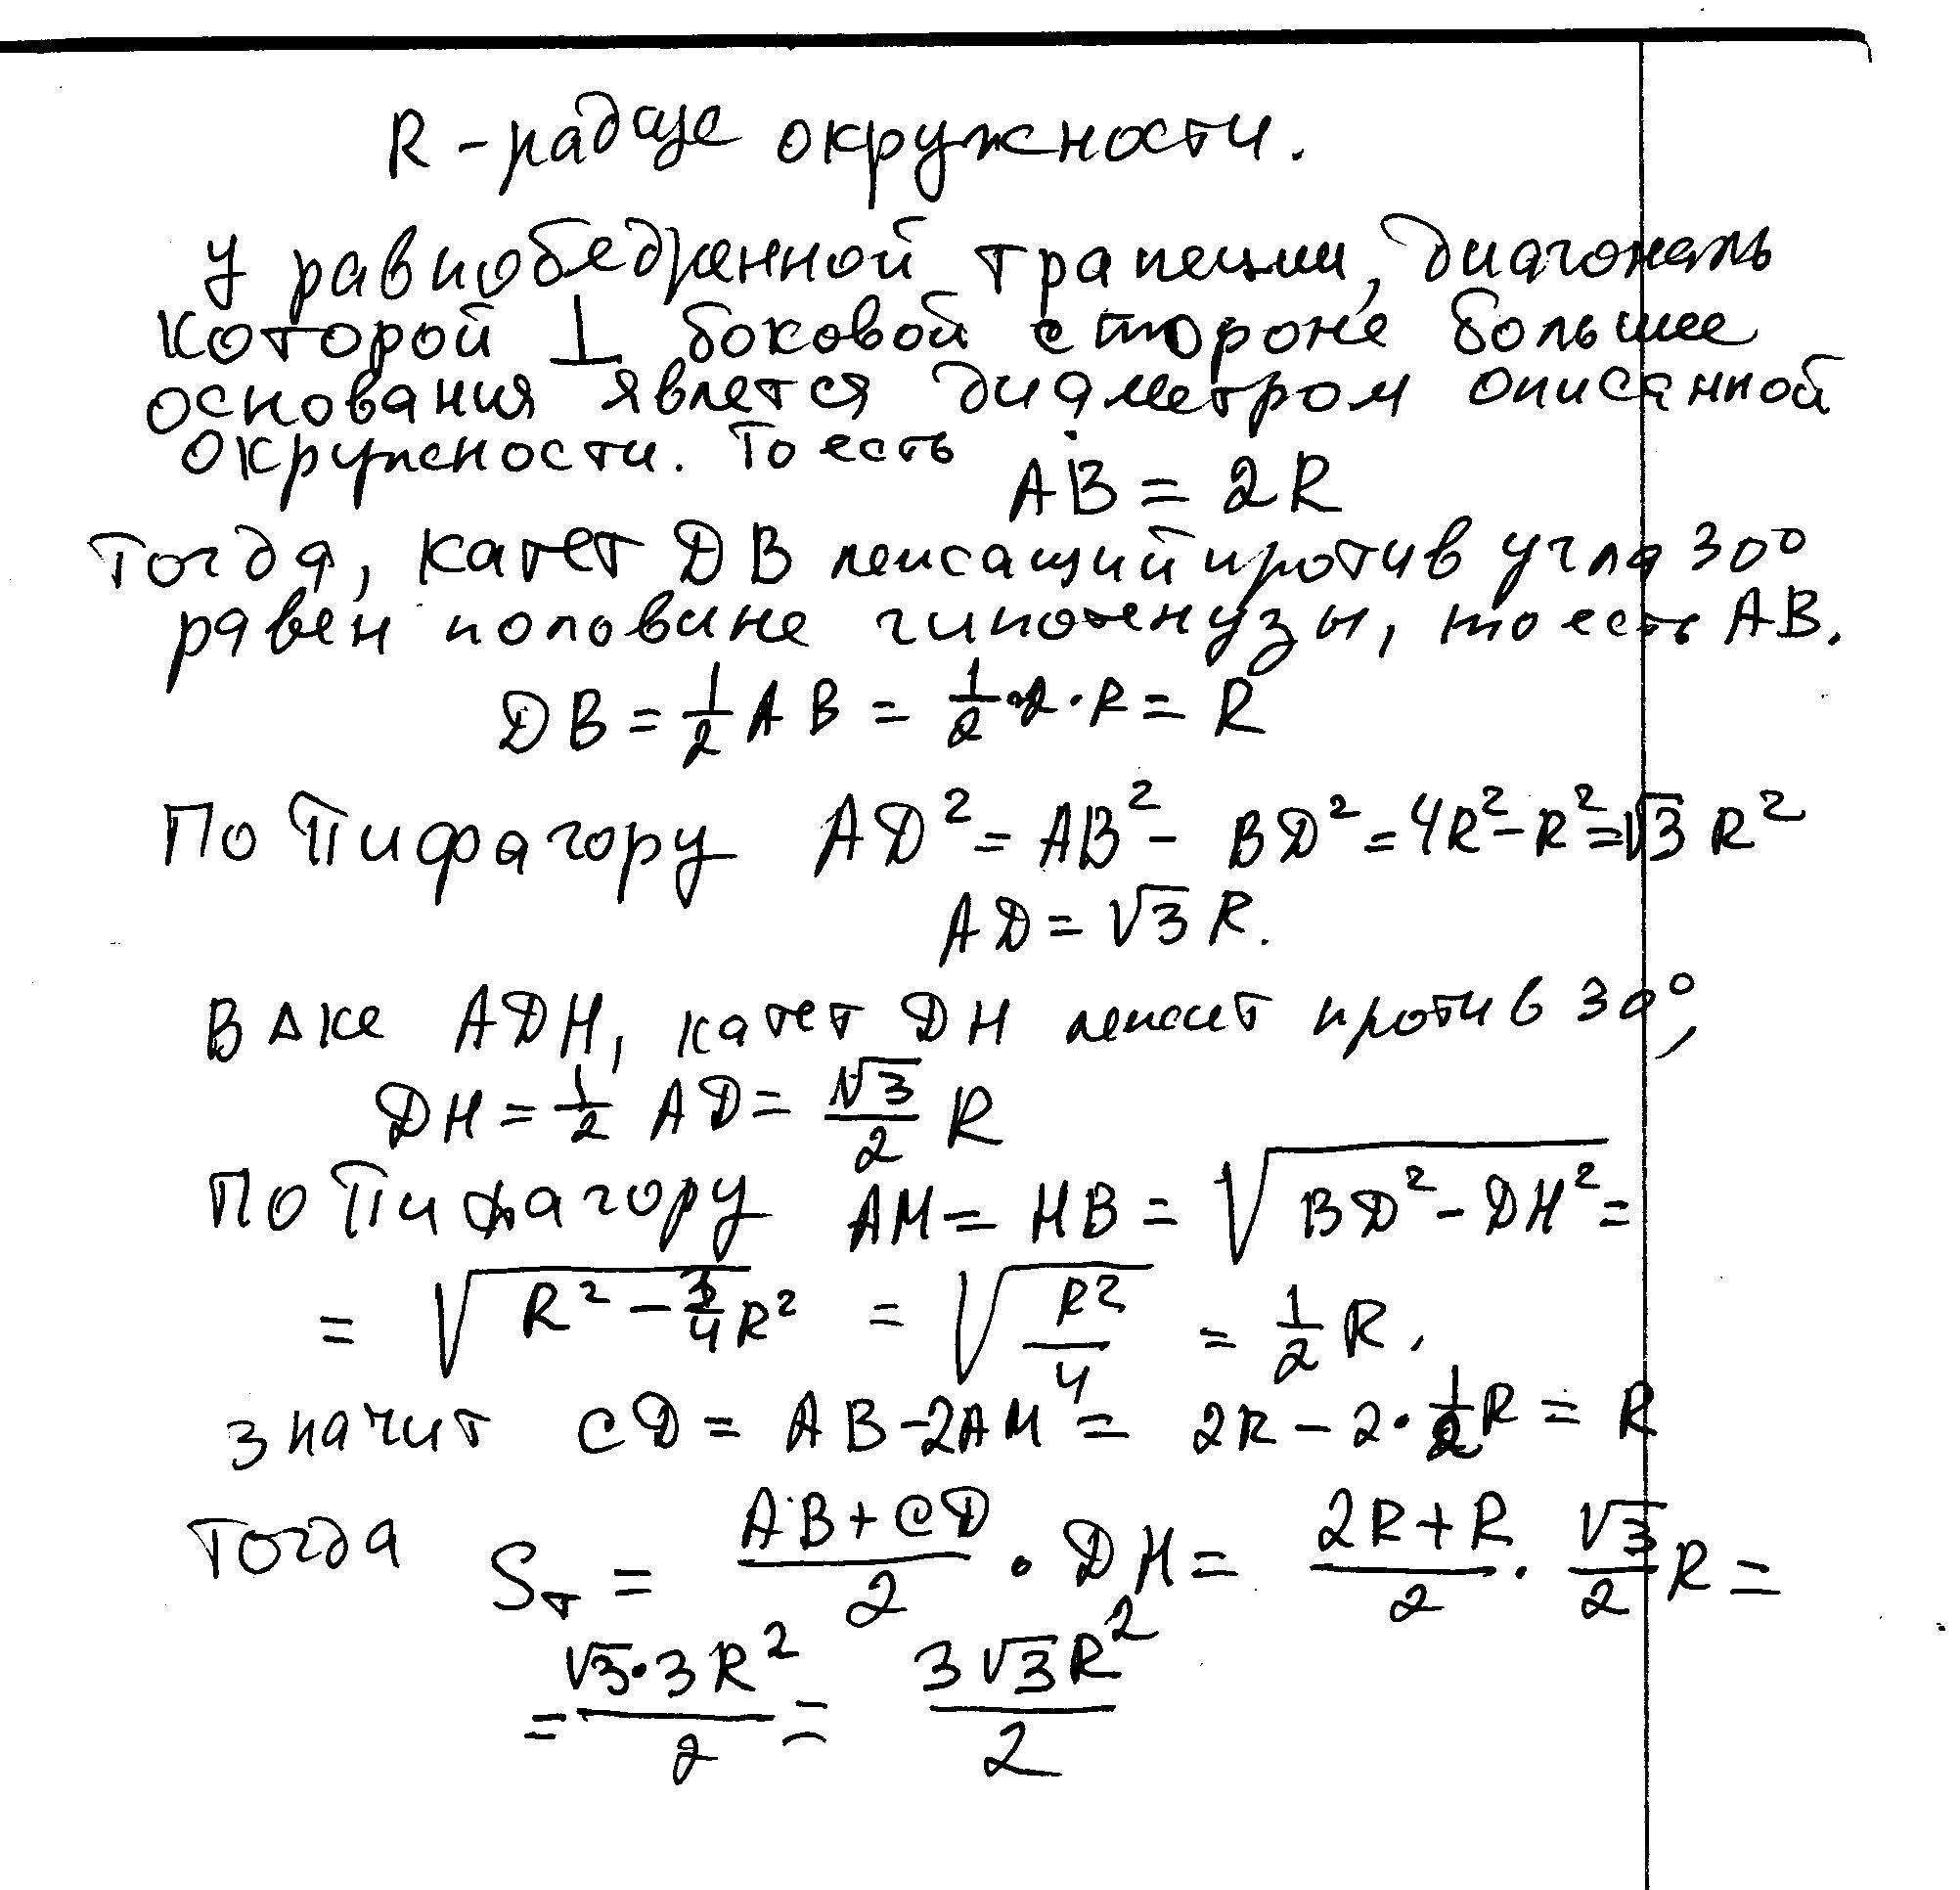 R - радиус окружности.
У равнобедренной трапеции, диагональ
которой ⊥ боковой стороне большее
основания явлется диаметром описанной
окружности. То есть
AB = 2R
Тогда, катет DB лежащий против угла 30°
равен половине гипотенузы, то есть AB.
DB = 1/2 AB = 1/2 · 2 · R = R
По Пифагору AD² = AB² - BD² = 4R² - R² = √3 R²
AD = √3 R.
В Δке ADH, катет DH лежит против 30°,
DH = 1/2 AD = √3/2 R
По Пифагору AM = HB = √(BD² - DH²) =
= √(R² - 3/4 R²) = √(R²/4) = 1/2 R.
значит CD = AB - 2AM = 2R - 2 · 1/2 R = R
Тогда Sт = (AB + CD)/2 · DH = (2R + R)/2 · √3/2 R =
= √3 · 3R²/2 = 3√3R²/2